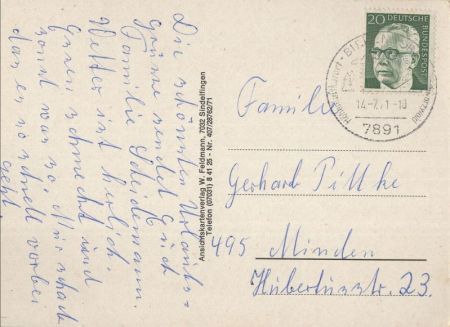 Die schönsten Urlaubs=
grüsse sendet Euch
Familie Scheidemann.
Wetter ist herrlich.
Essen schmeckt und
sonst was so. Nur schade
das es so schnell vorbei
geht.
Ansichtskartenverlag W. Feldmann, 7032 Sindelfingen
Telefon (07031) 8 41 25 - Nr. 407/28/62/71
20 DEUTSCHE
BUNDESPOST
14-7.71-18
7891
Familie
Gerhard Pillke
495 Minden
Hubertusstr. 23.